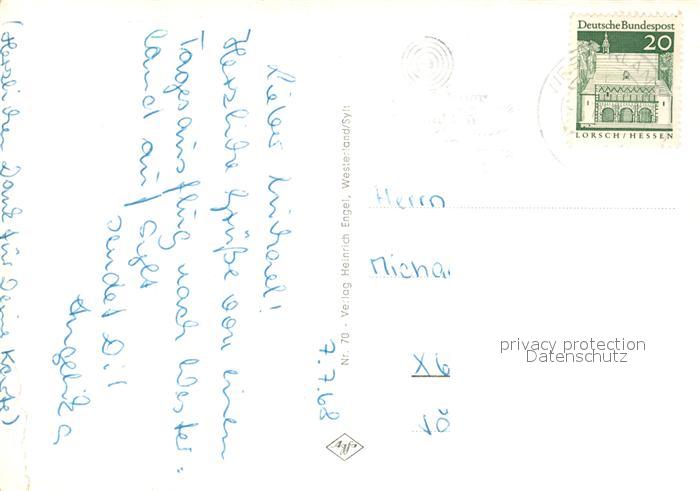 7.7.68
Lieber Michael!
Herzliche Grüße von einem
Tagesausflug nach Wester=
land auf Sylt
sendet Dir
Angelika
(Herzlichen Dank für Deine Karte)
Nr. 70 - Verlag Heinrich Engel, Westerland/Sylt
Deutsche Bundespost
20
LORSCH/HESSEN
Herrn
Micha
X6
privacy protection
Datenschutz